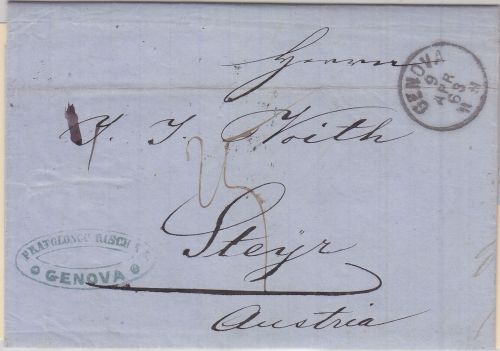 Herrn
GENOVA
9
APR
63
11 M
J. J. Voith
25
Steyr
PRATOLONGO RISCH & C.
GENOVA
Austria